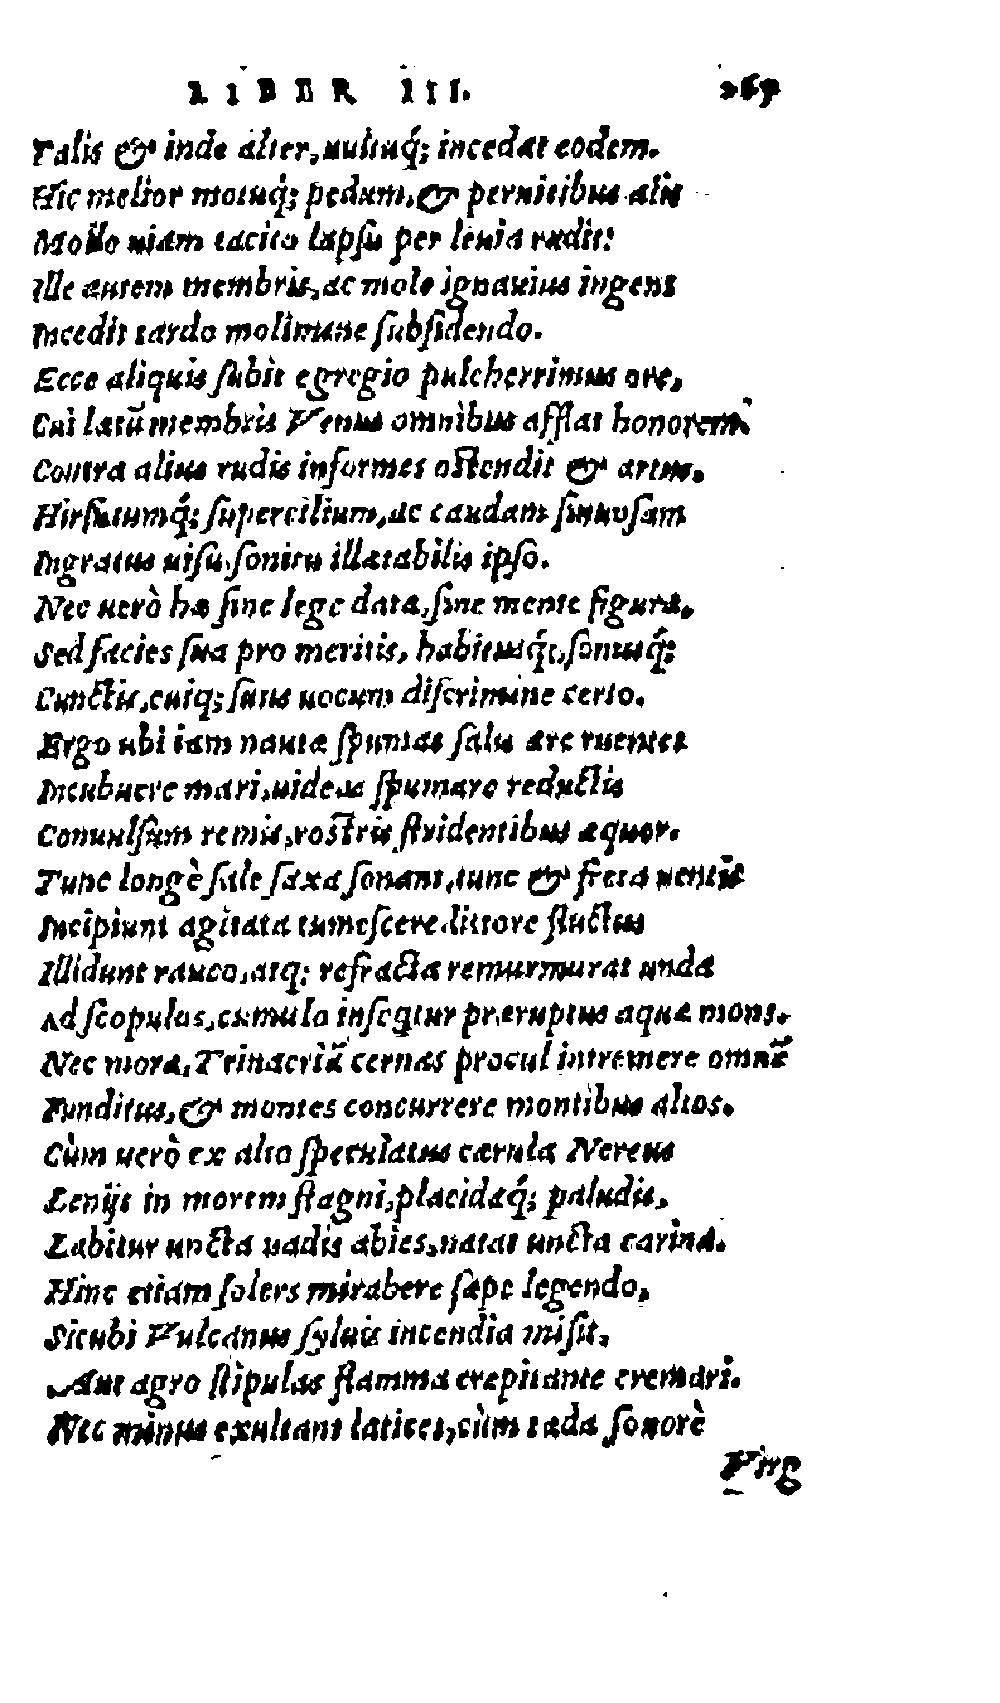 LIBER III. 267
Talis & inde alter, uultuq́; incedat eodem.
Hic melior motuq́; pedum, & pernicibus alis
Molle uiam tacito lapsu per leuia radit:
Ille autem membris, ac mole ignauius ingens
Incedit tardo molimine subsidendo.
Ecce aliquis subit egregio pulcherrimus ore,
Cui lætũ membris Venus omnibus afflat honorem.
Contra alius rudis informes ostendit & artus,
Hirsutumq́; supercilium, ac caudam sinuosam
Ingratus uisu, sonitu illætabilis ipso.
Nec uerò hæ sine lege datæ, sine mente figuræ,
Sed facies sua pro meritis, habitusq́;, sonusq́;
Cunctis, cuiq; suus uocum discrimine certo.
Ergo ubi iam nautæ spumas salis ære ruentes
Incubuere mari, uideas spumare reductis
Conuulsum remis, rostris stridentibus æquor.
Tunc longè sale saxa sonant, tunc & freta uentis
Incipiunt agitata tumescere: littore fluctus
Illidunt rauco, atq; refracta remurmurat unda
Ad scopulos, cumulo insequitur præruptus aquæ mons.
Nec mora, Trinacriã cernas procul intremere omnẽ
Funditus, & montes concurrere montibus altos.
Cùm uerò ex alto speculatus cærula Nereus
Lenijt in morem stagni, placidæq́; paludis,
Labitur uncta uadis abies, natat uncta carina.
Hinc etiam solers mirabere sæpe legendo,
Sicubi Vulcanus syluis incendia misit,
Aut agro stipulas flamma crepitante cremari.
Nec minus exultant latices, cùm tæda sonorè
Virg